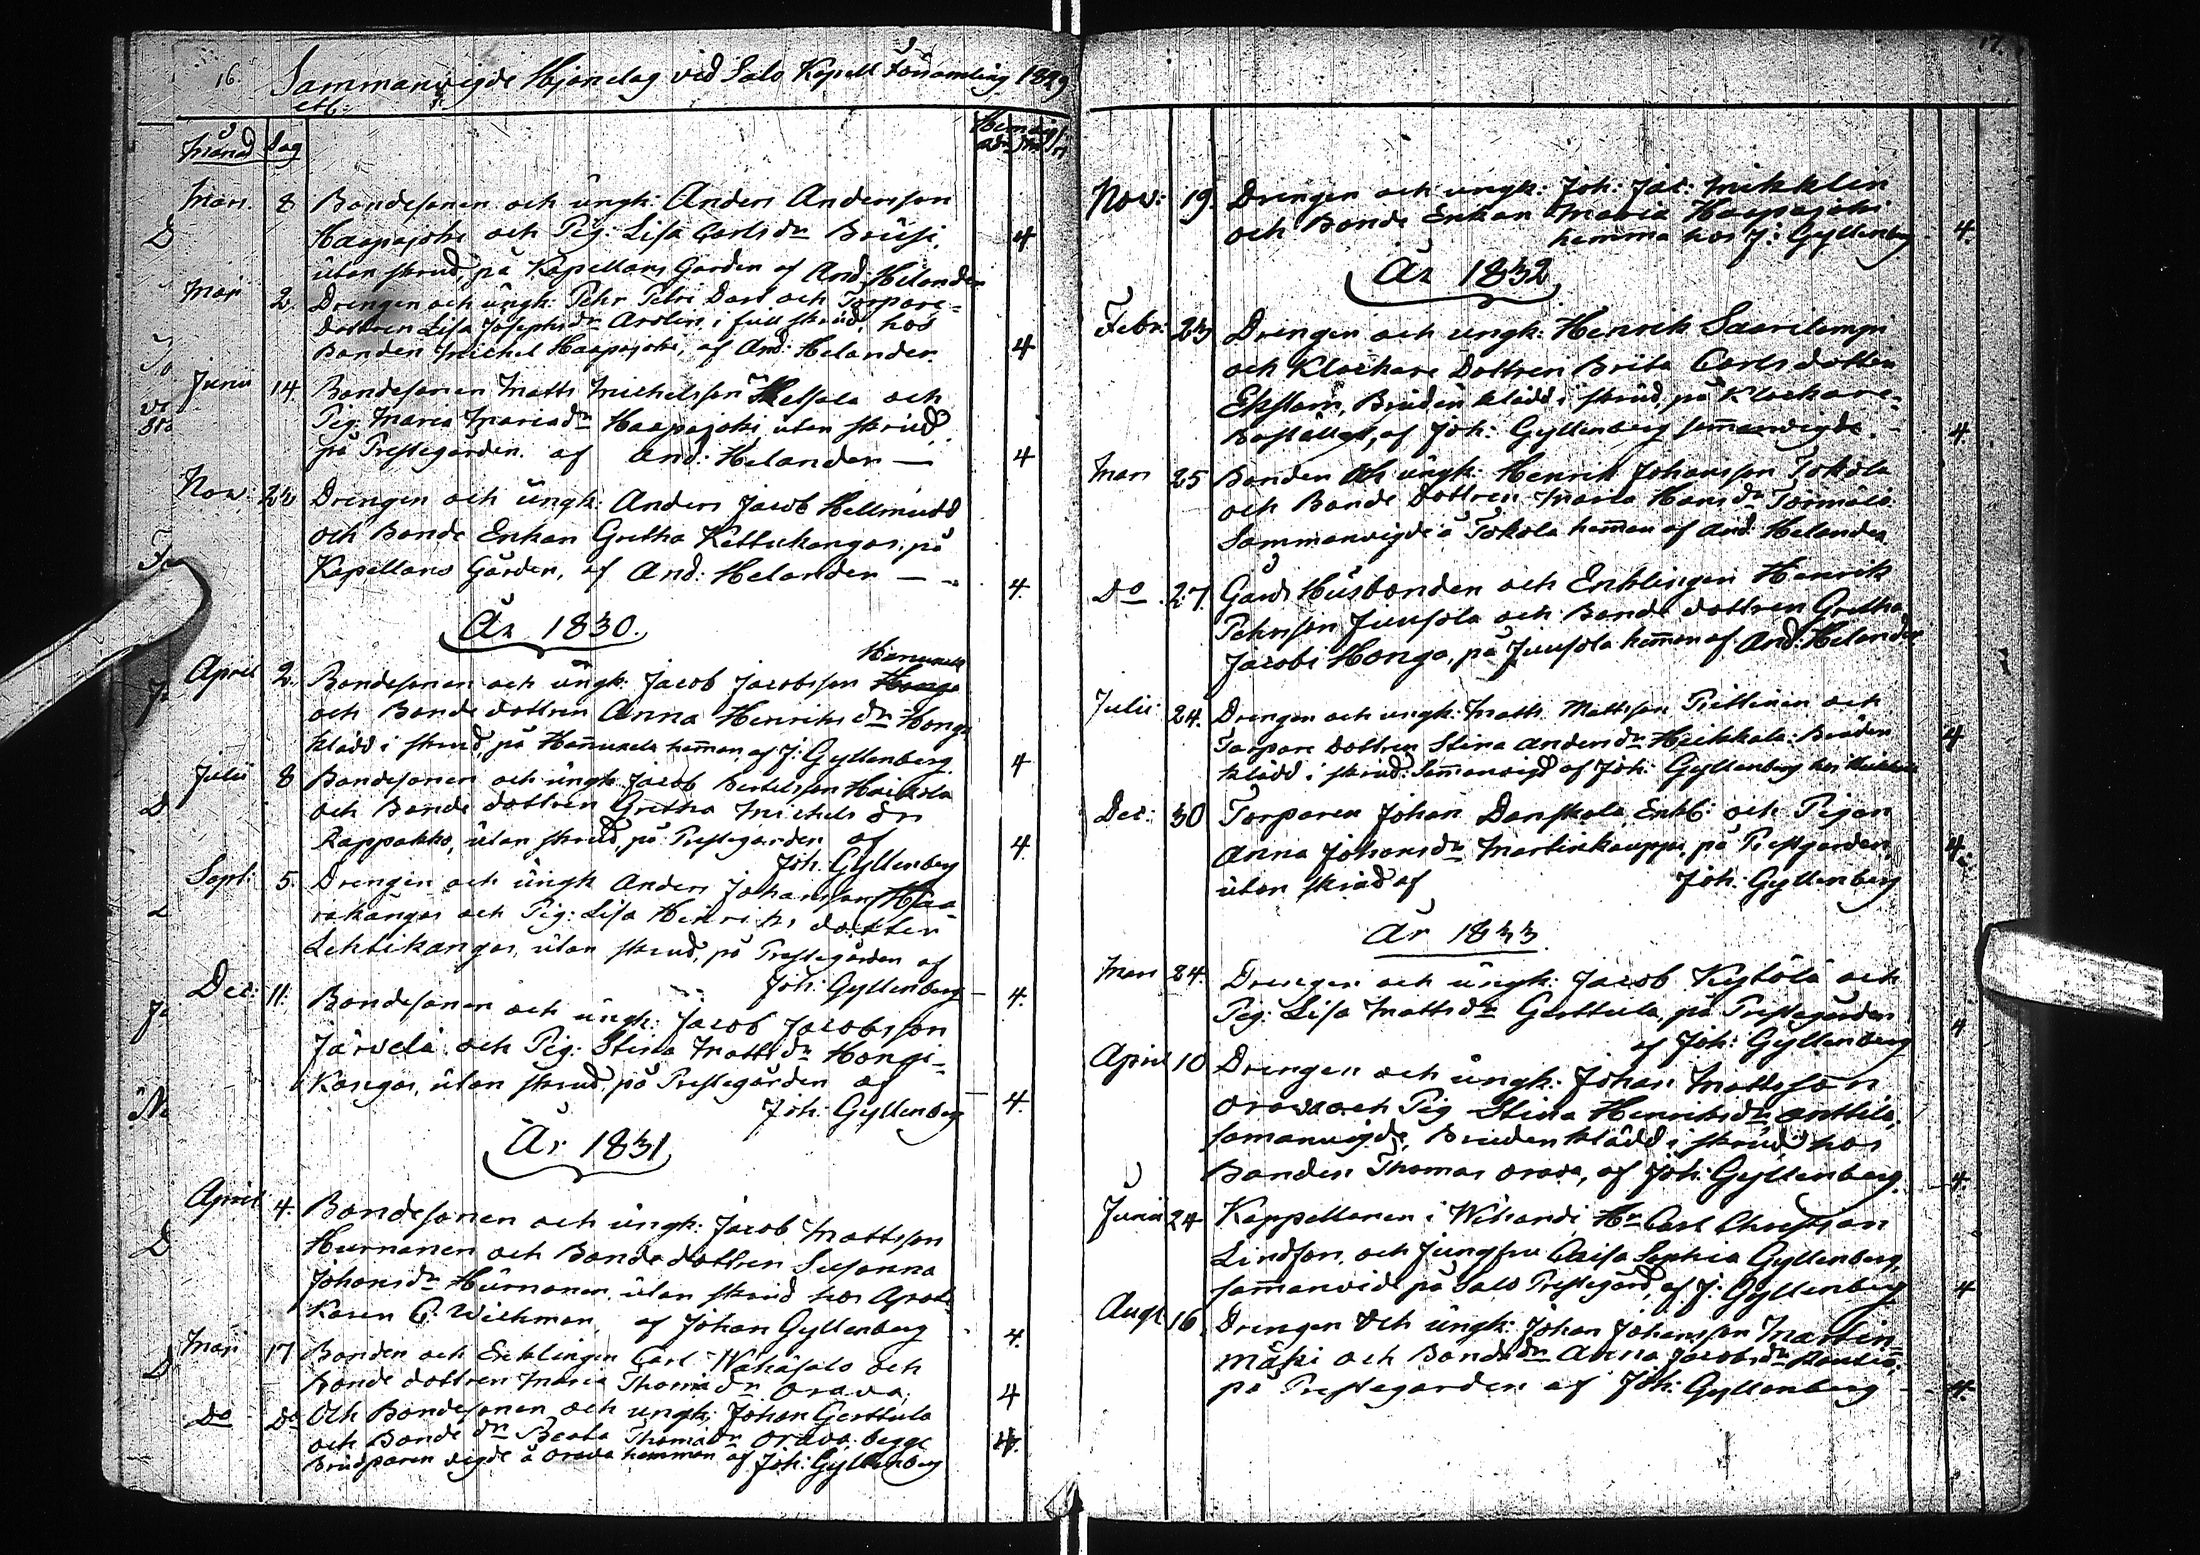 16. Sammanvigde Hjonelag vid Salo Kapell Församling 1829
etc:
Månad Dag
Mars. 8 Bondesonen och ungk: Anders Andersson
Haapajoki och Pig: Lisa Carls dr Brusi,
utan skrud, på Kapellans Gården af And: Helander
4
Maji 2. Drengen och ungk: Pehr Petri Dart och Torpare-
Dottren Lisa Josephs dr Arolin i full skrud, hos
Bonden Michel Haapajoki, af And: Helander.
4
Junii 14. Bondesonen Matts Michelsson och
Pig: Maria Dr Haapajoki utan skrud
på Prestegården af And: Helander —
4
Nov: 22 Drengen och ungk: Anders Jacob Hellmudd
och Bonde Enkan Gretha Kettukangas, på
Kapellans Gården, af And: Helander —
4.
År 1830.
April 2. Bondesonen och ungk: Jacob Jacobsson Hannuxela
och Bonde dottren Anna Henriks dr Honga
klädd i skrud, på Hannuxela hemman, af J: Gyllenberg.
4
Julii 8 Bondesonen och ungk: Jacob Bertelsson Haikola
och Bonde dottren Gretha Michels dr
Rappakko, utan skrud, på Prestegården af
Joh: Gyllenberg
4.
Sept: 5. Drengen och ungk: Anders Johansson Haa-
rakangas och Pig: Lisa Henriks dotter
Lehtikangas, utan skrud, på Prestegården af
Joh: Gyllenberg —
4.
Dec: 11. Bondesonen och ungk: Jacob Jacobsson
Järvelä och Pig: Stina Matts dr Hongi-
Kangas, utan skrud på Prestegården af
Joh: Gyllenberg —
4.
År 1831
April 4. Bondesonen och ungk: Jacob Mattsson
Hurnanen och Bonde dottren Susanna
Johans dr Hurnanen, utan skrud hos Apot-
Karen C: Wichman, af Johan Gyllenberg
4.
Maji 17 Bonden och Encklingen Carl Wähäsalo och
Bonde dottren Maria Thoma dr Orava.
4
Do Do Och Bondesonen och ungk: Johan Gerttula
och Bonde dr Beata Thoma dr Orava, begge
Brudparen vigde å Orava hemman af Joh: Gyllenberg
4.
17.
Nov: 19. Drengen och ungk: Joh: Jac: Mikklin
och Bonde Enkan Maria Haapajoki
hemma hos J: Gyllenberg
4.
År 1832
Febr: 23 Drengen och ungk: Henrik Saarelampi
och Klockare Dottren Brita Carls dotter
Ekstam, Bruden klädd i skrud, på Klockare-
Bostället, af Joh: Gyllenberg sammanvigde.
4.
Mars 25 Bonden och ungk: Henrik Johansson Tokola
och Bonde Dottren Maria Hans dr Törmälä
Sammanvigde å Tokola hemman af And: Helander.
Do 27. Gårds Husbonden och Encklingen Henrik
Pehrsson Juusola och Bonde dottren Gretha
Jacobs Honga, på Juusola hemman af And: Helander
Julii 24. Drengen och ungk: Matts Mattsson Piettinen och
Torpare Dottren Stina Anders dr Heikkala: Bruden
klädd i skrud: Sammanvigd af Joh: Gyllenberg hos
4
Dec: 30 Torparen Johan Danskala, Enkl: och Pigan
Anna Johans dr Martinkauppi på Prestgården,
utan skrud af Joh: Gyllenberg
4.
År 1833.
Mars 24. Drengen och ungk: Jacob Kytölä och
Pig: Lisa Matts dr Gerttula, på Prestegården
af Joh: Gyllenberg
4
April 10 Drengen och ungk: Johan Mattsson
Orava och Pig: Stina Henriks dr Anttila,
samanvigde, Bruden klädd i skrud hos
Bonden Thomas Orava, af Joh: Gyllenberg.
4.
Junii 24 Kappellanen i Wihandi Hr Carl Christian
Lindfors, och Jungfru Caisa Sophia Gyllenberg,
sammanvid på Salo Prestegård, af J: Gyllenberg
4
Aug: 16. Drengen och ungk: Johan Johansson Martin-
mäki och Bonde dr Anna Jacobs dr
på Prestegården af Joh: Gyllenberg
4.